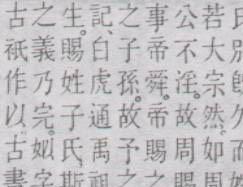 若大宗然。如周
公不淫。故周賜
事帝舜。帝賜之
之子孫。故予之
記、白虎通禹祖
生。賜姓子氏、斯
之義乃完。姒字
古祇作以。古書